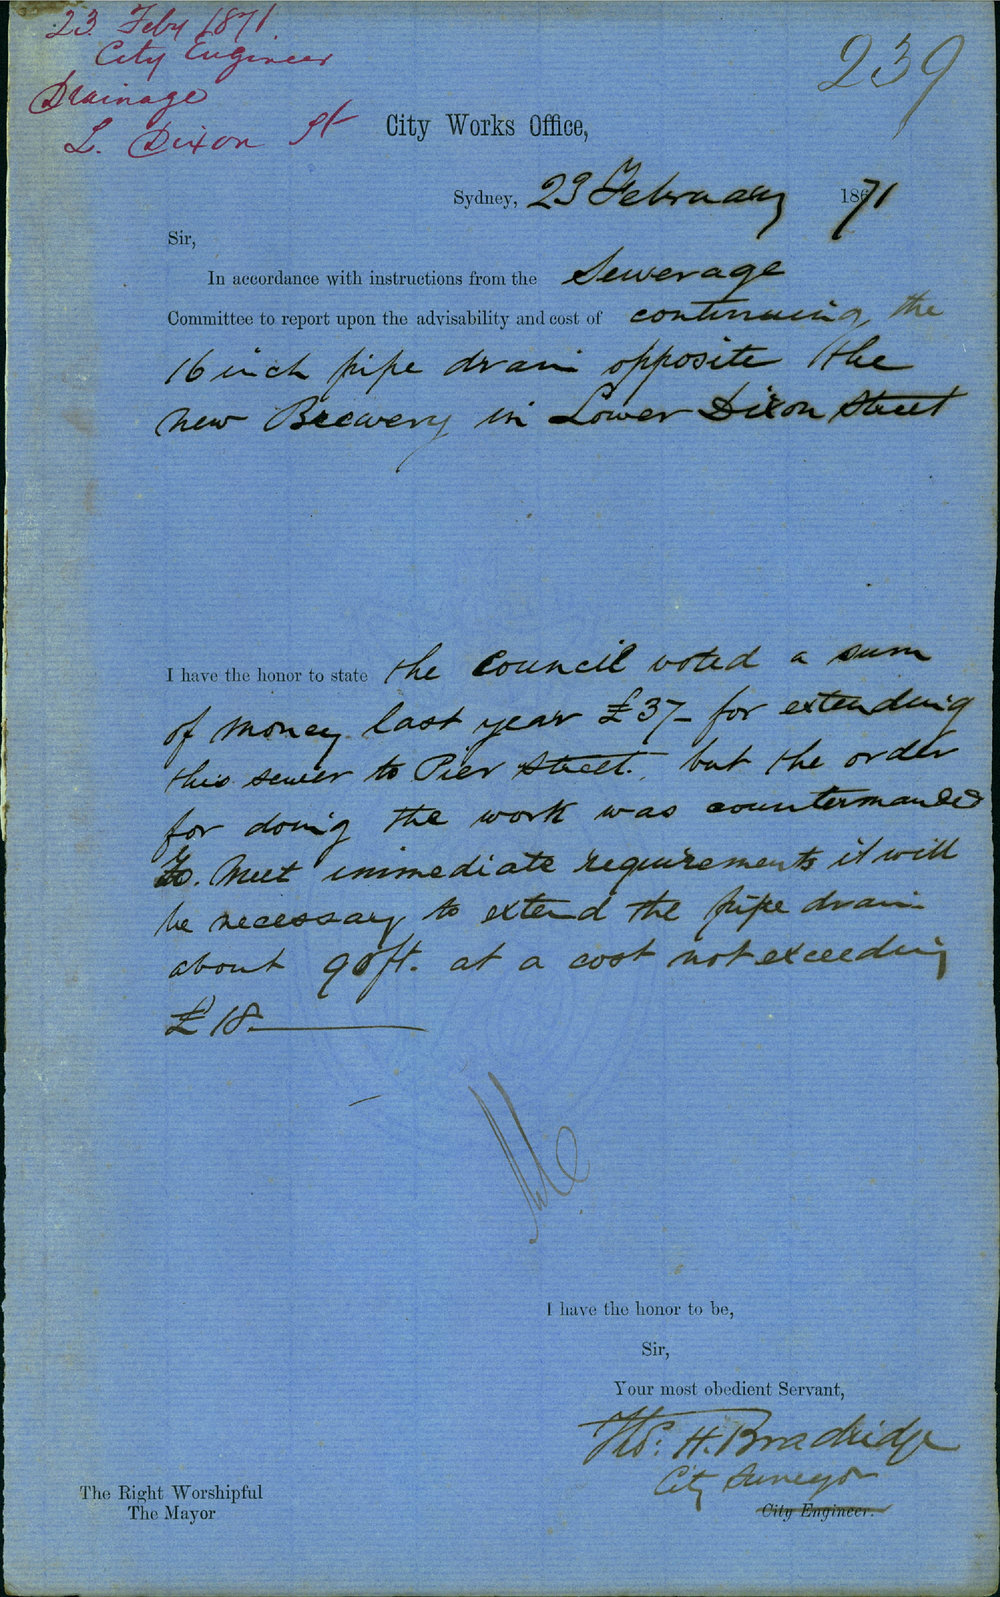 23 Feby 1871.
City Engineer
Drainage
L. Dixon St
239
City Works Office,
Sydney, 23 February 1871
Sir,
In accordance with instructions from the Sewerage
Committee to report upon the advisability and cost of continuing the
16 inch pipe drain opposite the
new Brewery in Lower Dixon Street
I have the honor to state the Council voted a sum
of money last year £37- for extending
this sewer to Pier Street. but the order
for doing the work was countermanded
To. Meet immediate requirements it will
be necessary to extend the pipe drain
about 90ft. at a cost not exceeding
£18.
I have the honor to be,
Sir,
Your most obedient Servant,
Thos: H. Bradridge
City Surveyor
City Engineer.
The Right Worshipful
The Mayor